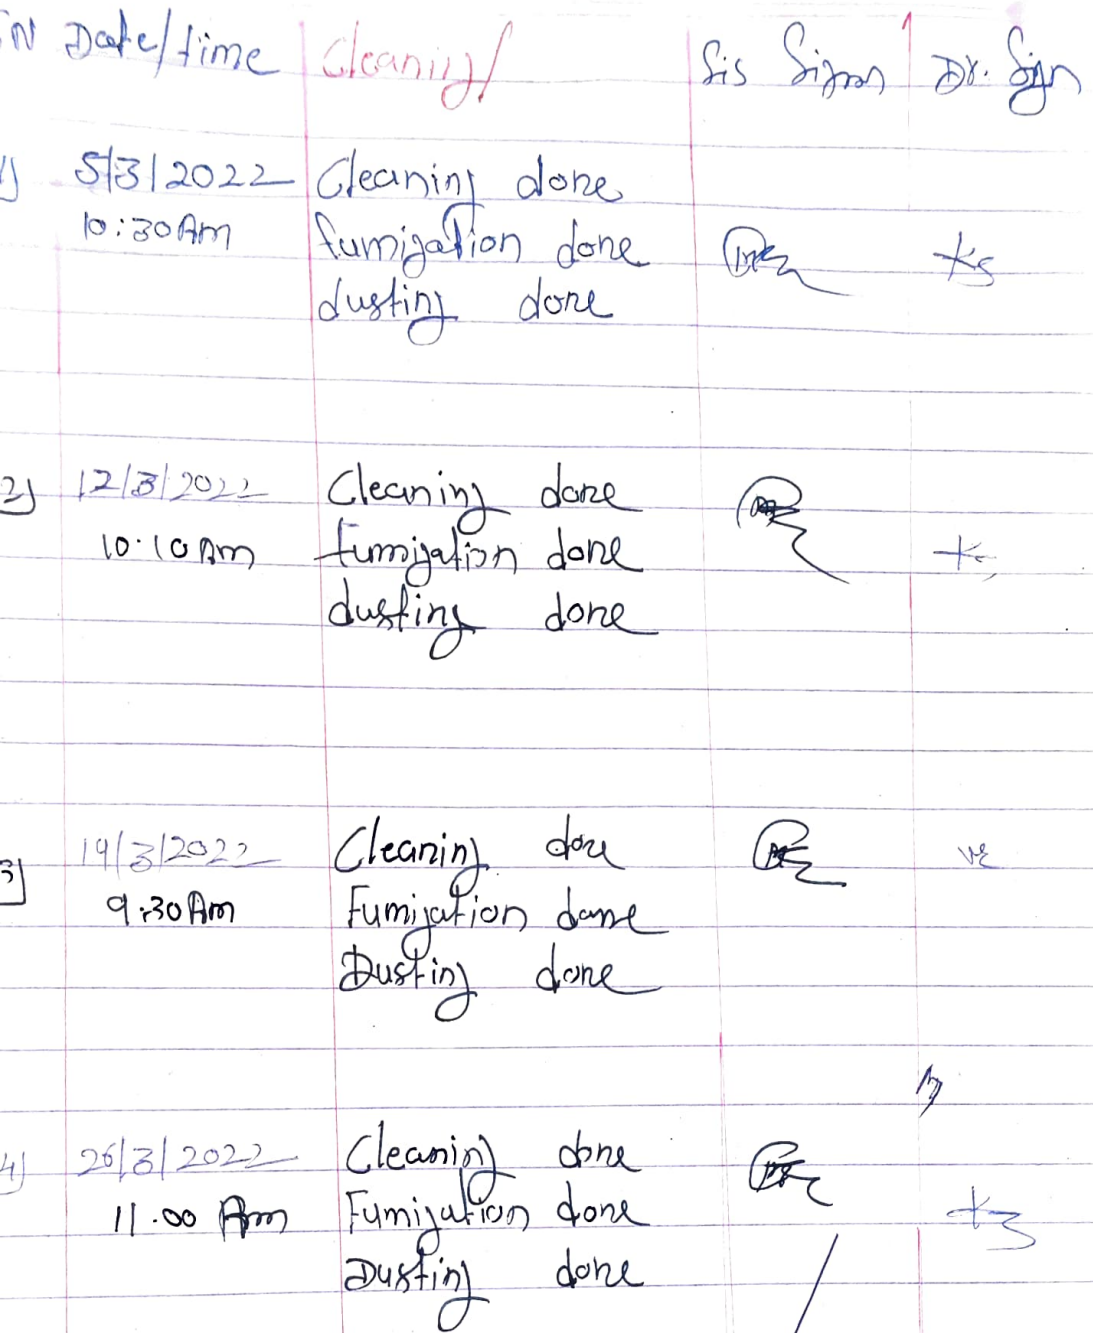 SN Date/time Cleaning/ Sis Sign Dr. Sign
1) 5/3/2022 Cleaning done
10:30 Am fumigation done
dusting done
2) 12/3/2022 Cleaning done
10.10 Am fumigation done
dusting done
3) 19/3/2022 Cleaning done
9:30 Am Fumigation done
Dusting done
4) 26/3/2022 Cleaning done
11.00 Am Fumigation done
Dusting done